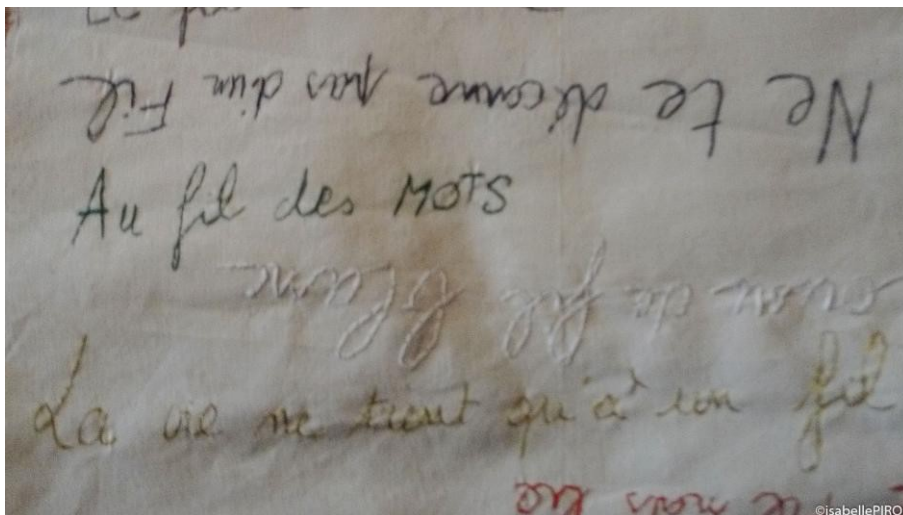 Ne te découvre pas d'un Fil
Au fil des MOTS
cousu de fil blanc
La vie ne tient qu'à un fil
nous lie
©isabellePIRO